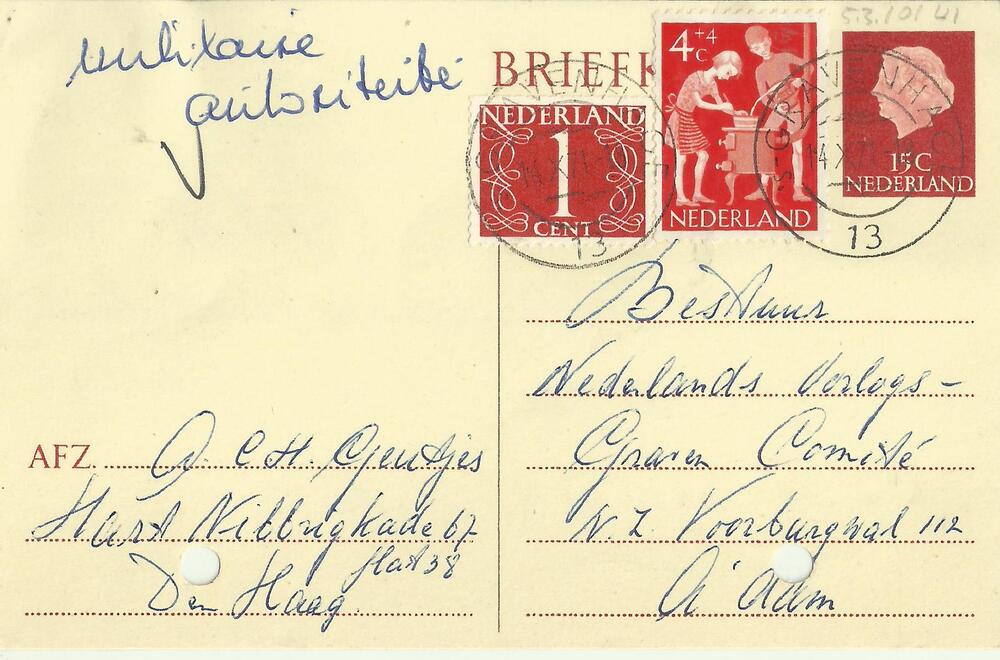 militaire
autoriteite
5.3.101 41
BRIEFK
NEDERLAND
1
CENT
4+4
C
NEDERLAND
15C
NEDERLAND
'S-GRAVENHAGE
14.X.71
13
'S-GRAVENHAGE
14.X.71
13
Bestuur
Nederlands Oorlogs-
Graven Comité
N.Z. Voorburgwal 112
A'dam
AFZ.
C.H. Gentjes
Hart Nibbrigkade 67
flat 38
Den Haag